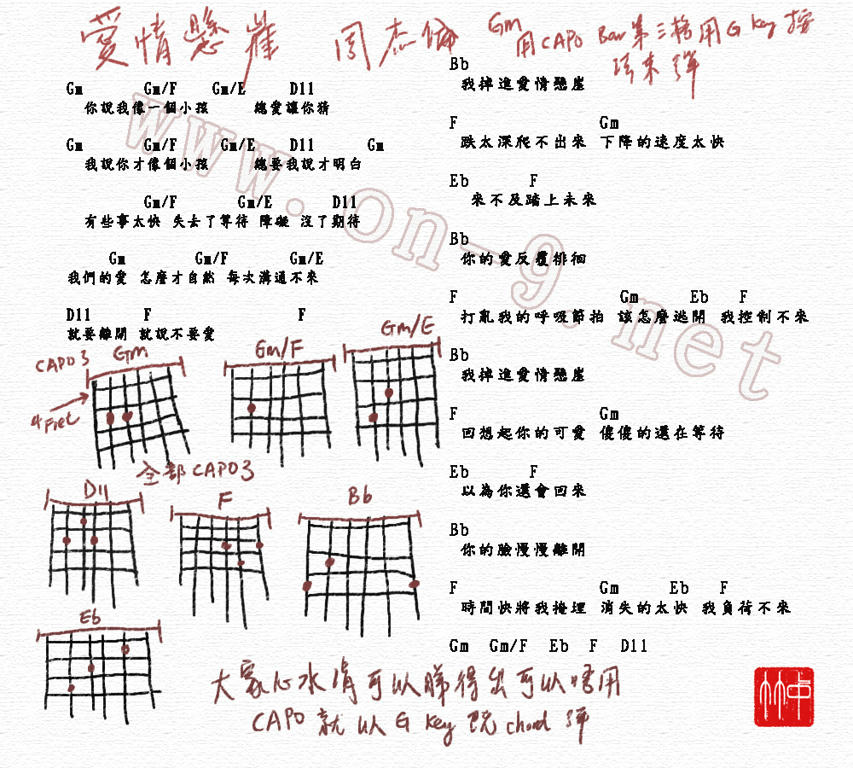 愛情懸崖 周杰倫
Gm 用 CAPO Bar 第三格用 G key 按
法來彈
Gm Gm/F Gm/E D11
你說我像一個小孩 總愛讓你猜
Gm Gm/F Gm/E D11 Gm
我說你才像個小孩 總要我說才明白
Gm/F Gm/E D11
有些事太快 失去了等待 障礙 沒了期待
Gm Gm/F Gm/E
我們的愛 怎麼才自然 每次溝通不來
D11 F F
就要離開 就說不要愛
CAPO 3 Gm
Gm/F
Gm/E
4 Fret
全部 CAPO 3
D11
F
Bb
Eb
Bb
我掉進愛情懸崖
F Gm
跌太深爬不出來 下降的速度太快
Eb F
來不及踏上未來
Bb
你的愛反覆徘徊
F Gm Eb F
打亂我的呼吸節拍 該怎麼逃開 我控制不來
Bb
我掉進愛情懸崖
F Gm
回想起你的可愛 傻傻的還在等待
Eb F
以為你還會回來
Bb
你的臉慢慢離開
F Gm Eb F
時間快將我掩埋 消失的太快 我負荷不來
Gm Gm/F Eb F D11
大家心水清可以睇得出可以唔用
CAPO 就以 G key 既 chord 彈
www.on-9.net